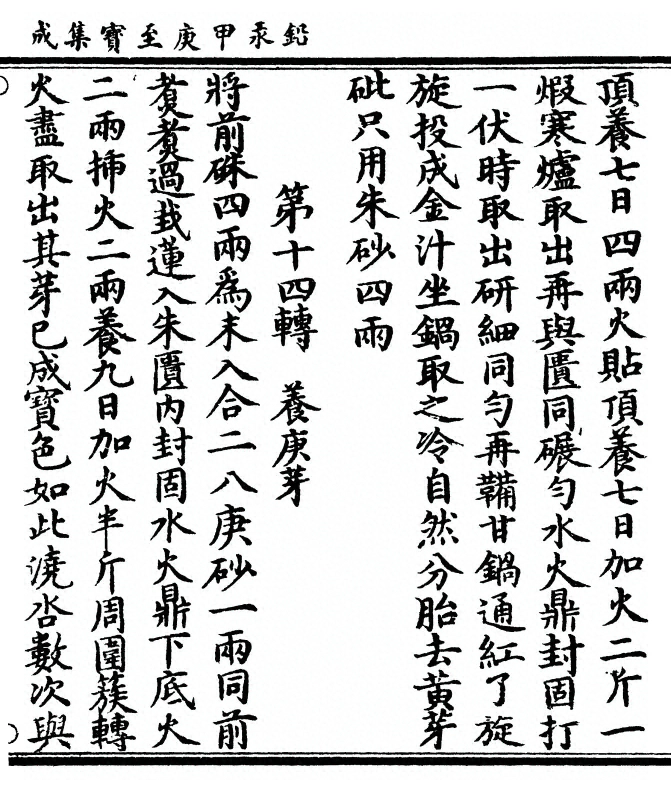 鉛汞甲庚至寶集成
頂養七日四兩火貼頂養七日加火二斤一
煆寒爐取出再與匱同碾勻水火鼎封固打
一伏時取出研細同勻再鞴甘鍋通紅了旋
旋投成金汁坐鍋取之冷自然分胎去黃芽
砒只用朱砂四兩
第十四轉 養庚芽
將前硃四兩為末入合二八庚砂一兩同前
煑煑過栽蓮入朱匱內封固水火鼎下底火
二兩揷火二兩養九日加火半斤周圍簇轉
火盡取出其芽已成寶色如此澆沓數次與